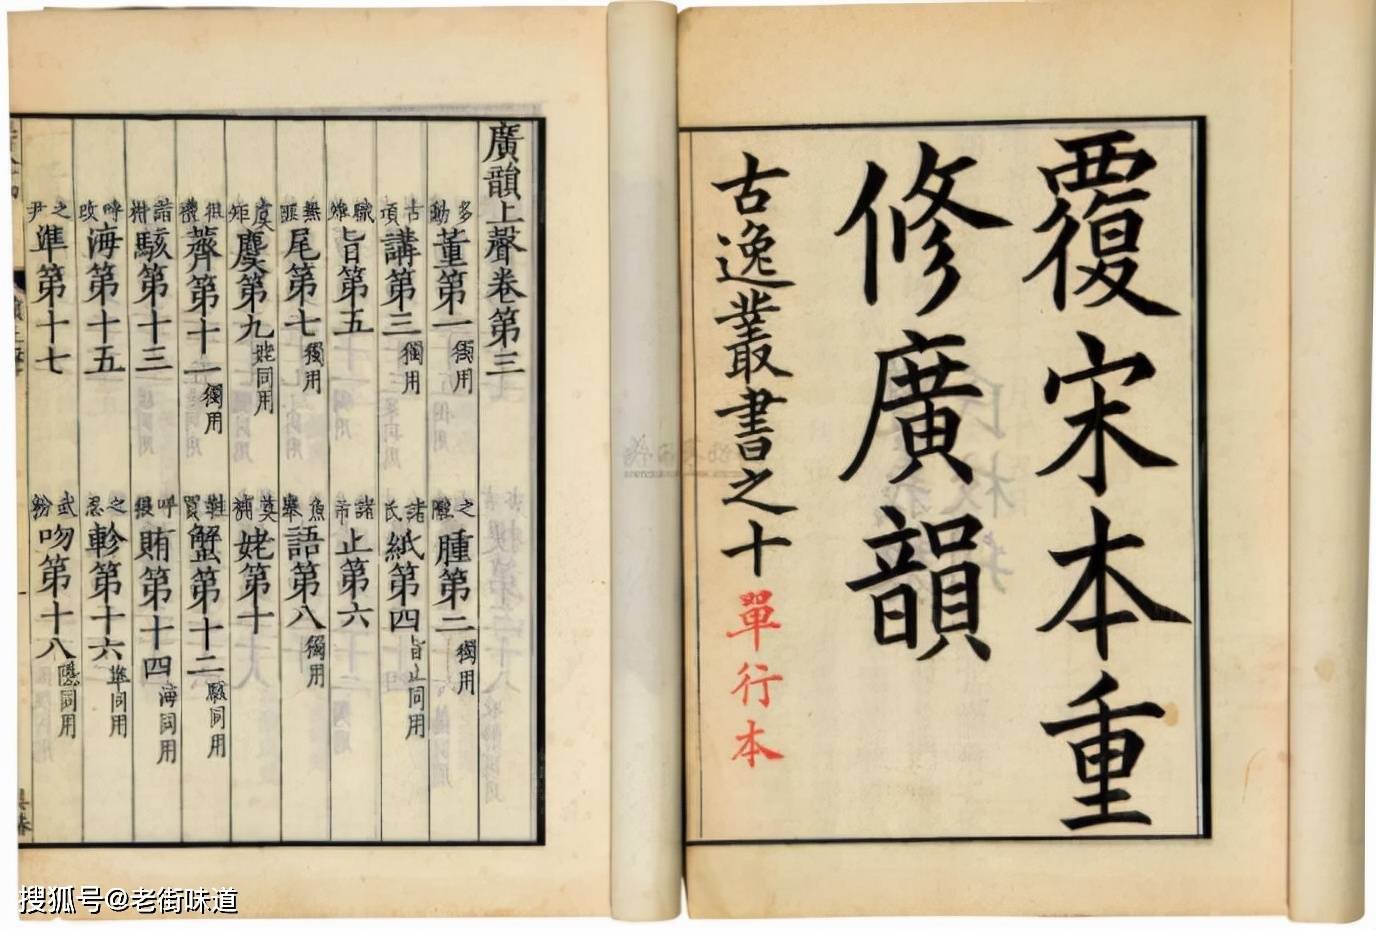 覆宋本重
修廣韻
古逸叢書之十 單行本
廣韻上聲卷第三
多動董第一獨用 之隴腫第二獨用
古項講第三獨用 諸氏紙第四旨止同用
職雉旨第五 諸市止第六
無匪尾第七獨用 魚舉語第八獨用
虞矩麌第九姥同用 莫補姥第十
徂禮薺第十一獨用 鞋買蟹第十二駭同用
諧楷駭第十三 呼猥賄第十四海同用
呼改海第十五 之忍軫第十六準同用
之尹準第十七 武粉吻第十八隱同用
搜狐号@老街味道